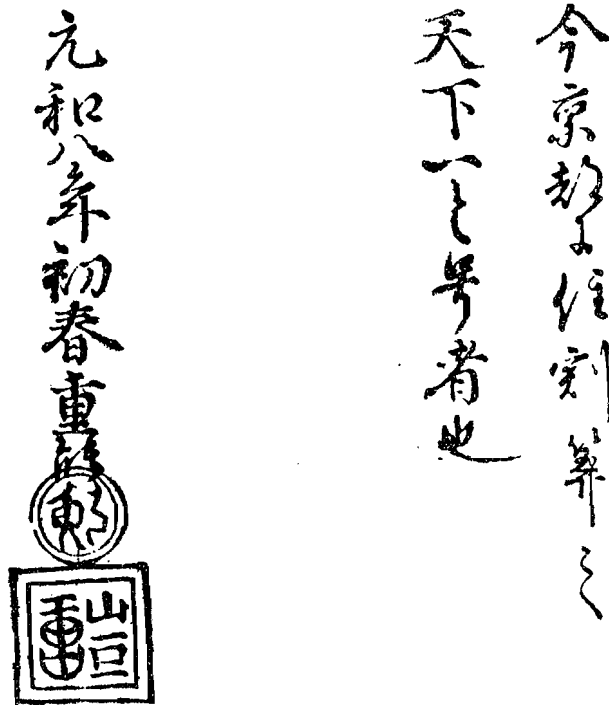 今京都に住割算之
天下一と号者也
元和八年初春重能